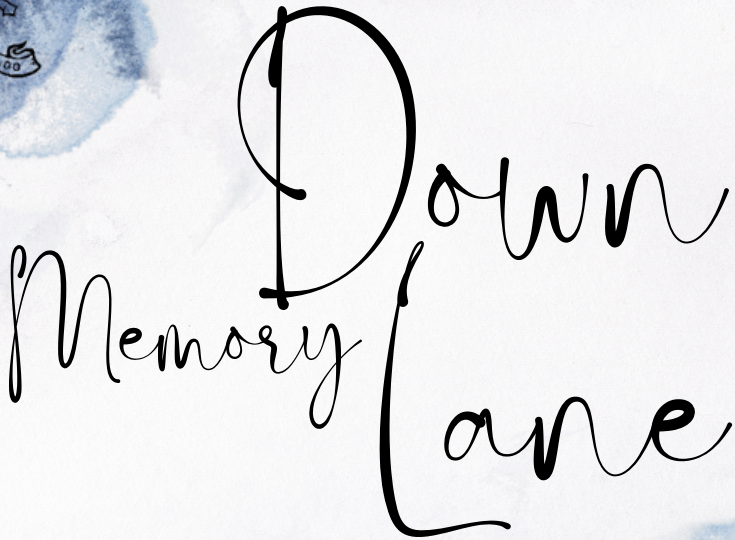 Down
Memory
Lane